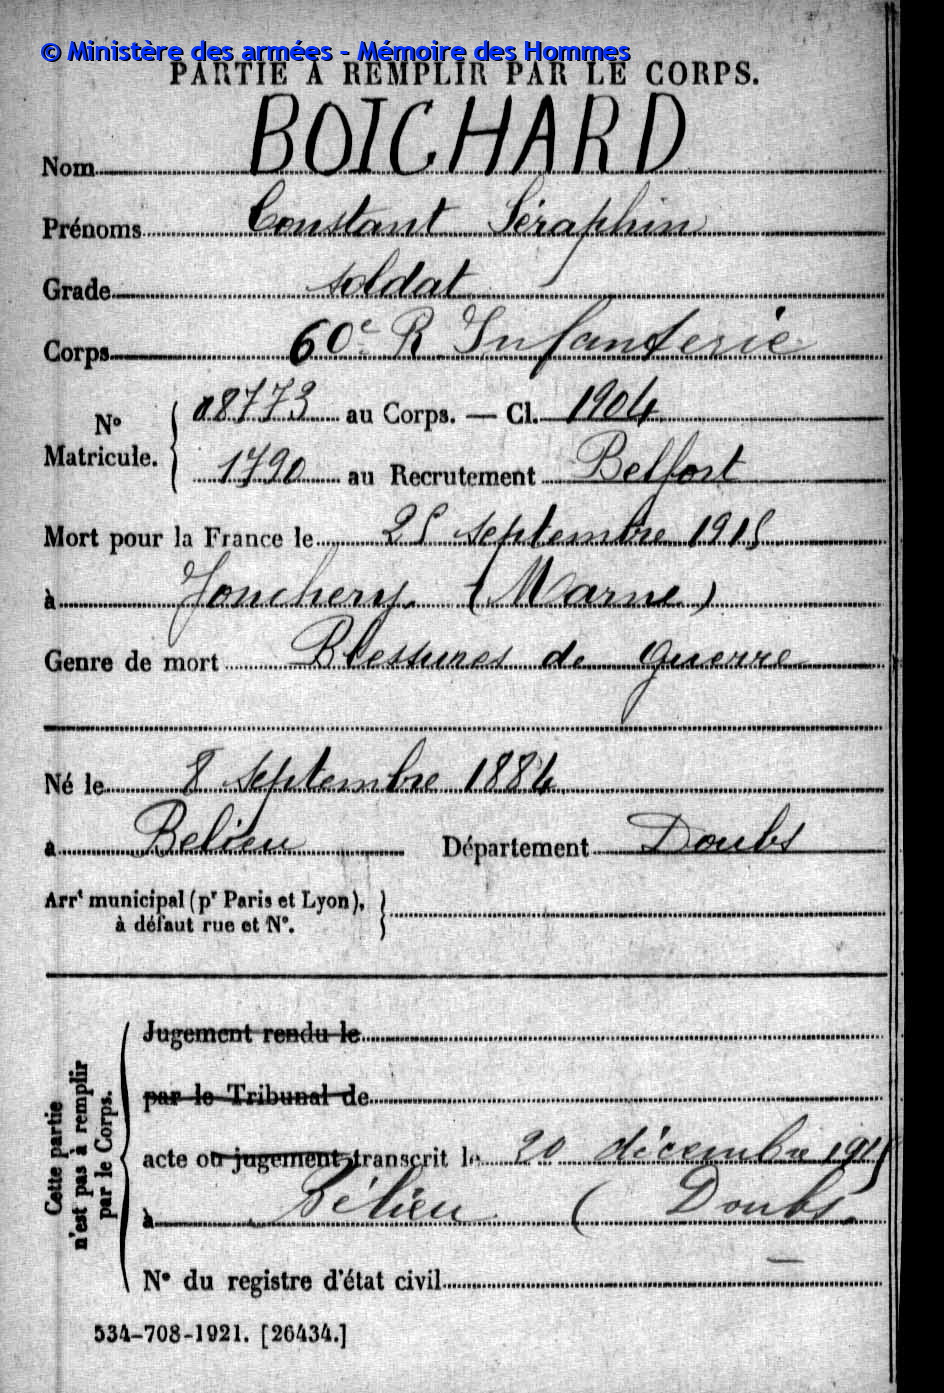 © Ministère des armées - Mémoire des Hommes
PARTIE À REMPLIR PAR LE CORPS.
Nom BOICHARD
Prénoms Constant Séraphin
Grade soldat
Corps 60e R. Infanterie
N° Matricule. { 08773 au Corps. — Cl. 1904
1790 au Recrutement Belfort
Mort pour la France le 25 septembre 1915
à Jonchery. (Marne)
Genre de mort Blessures de guerre
Né le 8 septembre 1884
à Belieu Département Doubs
Arrt municipal (pr Paris et Lyon), }
à défaut rue et N°.
Cette partie
n'est pas à remplir
par le Corps.
Jugement rendu le
par le Tribunal de
acte ou jugement transcrit le 20 décembre 1915
à Bélieu (Doubs.
N° du registre d'état civil —
534-708-1921. [26434.]